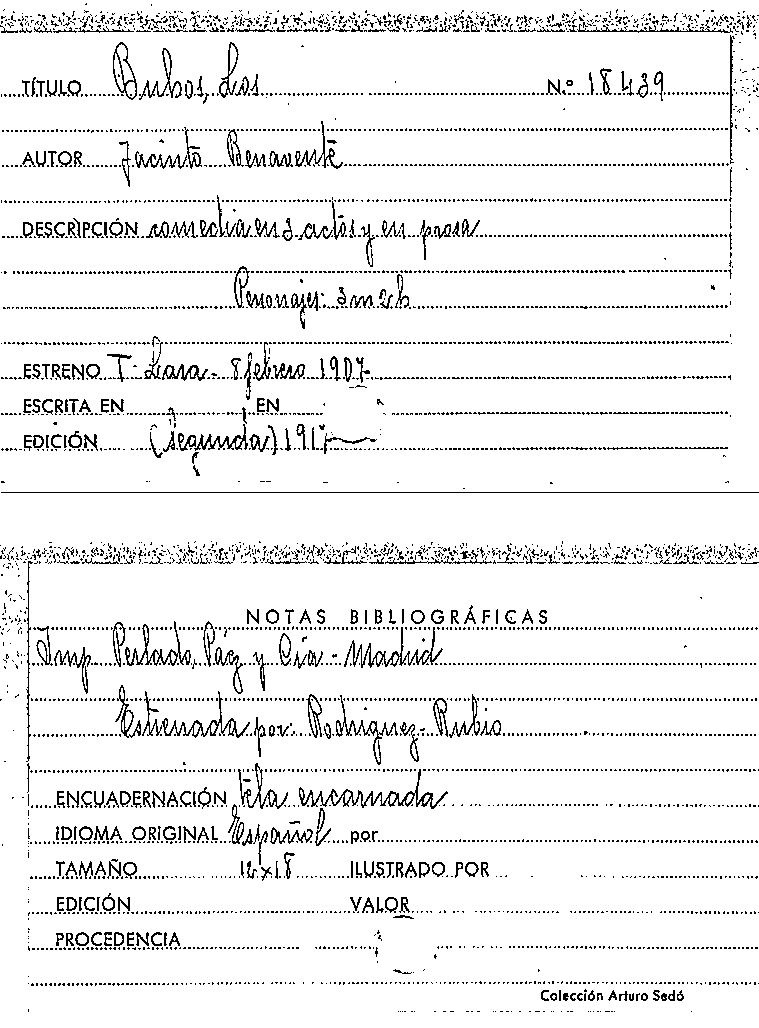 TÍTULO Buhos, Los Nº 18439
AUTOR Jacinto Benavente
DESCRIPCIÓN comedia en 3 actos y en prosa
Personajes: 3m 2h
ESTRENO T. Lara - 8 febrero 1907
ESCRITA EN EN
EDICIÓN (Segunda) 1917
NOTAS BIBLIOGRÁFICAS
Imp. Perlado, Páez y Cía - Madrid
Estrenada por: Rodriguez - Rubio
ENCUADERNACIÓN tela encarnada
IDIOMA ORIGINAL Español por
TAMAÑO 12x18 ILUSTRADO POR
EDICIÓN VALOR
PROCEDENCIA
Colección Arturo Sedó